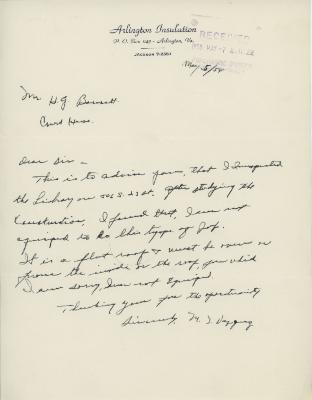 Arlington Insulation
P. O. Box 549 - Arlington, Va.
JACKSON
RECEIVED
May 5/58
Mr. H. G.
Court House.
Dear Sir -
This is to advise you, that I inspected
the Library on St. After studying the
Construction, I found that I am not
equiped to do this type of Job.
It is a flat roof & must be over or
from the inside or the roof, for which
I am sorry, I am not equiped.
Thanking you for the opportunity
Sincerely,